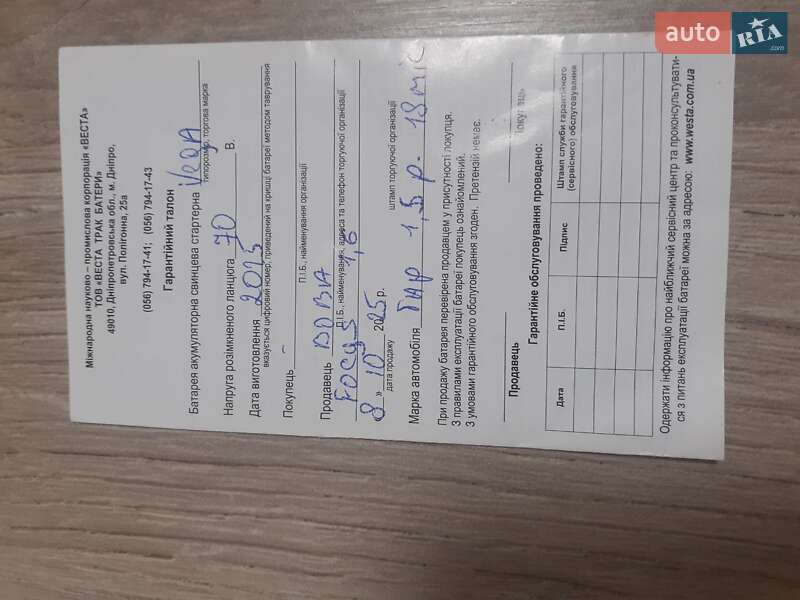 auto RIA.com
Міжнародна науково – промислова корпорація «ВЕСТА»
ТОВ «ВЕСТА ТРАК БАТЕРИ»
49010, Дніпропетровська обл., м. Дніпро,
вул. Полігонна, 25а
(056) 794-17-41; (056) 794-17-43
Гарантійний талон
Батарея акумуляторна свинцева стартерна Vega
типорозмір, торгова марка
Напруга розімкненого ланцюга 70 В.
Дата виготовлення 2025
вказується цифровий номер, приведений на кришці батареї методом таврування
Покупець –
П.І.Б., найменування організації
Продавець ВОВА
П.І.Б., найменування, адреса та телефон торгуючої організації
Focus 1,6
8 » 10 2025 р.
дата продажу
штамп торгуючої організації
Марка автомобіля Гар 1,5 р. 18 міс
При продажу батарея перевірена продавцем у присутності покупця.
З правилами експлуатації батареї покупець ознайомлений.
З умовами гарантійного обслуговування згоден. Претензій немає.
Продавець
Покупець
Гарантійне обслуговування проведено:
Дата П.І.Б. Підпис Штамп служби гарантійного (сервісного) обслуговування
Одержати інформацію про найближчий сервісний центр та проконсультувати-
ся з питань експлуатації батареї можна за адресою: www.westa.com.ua